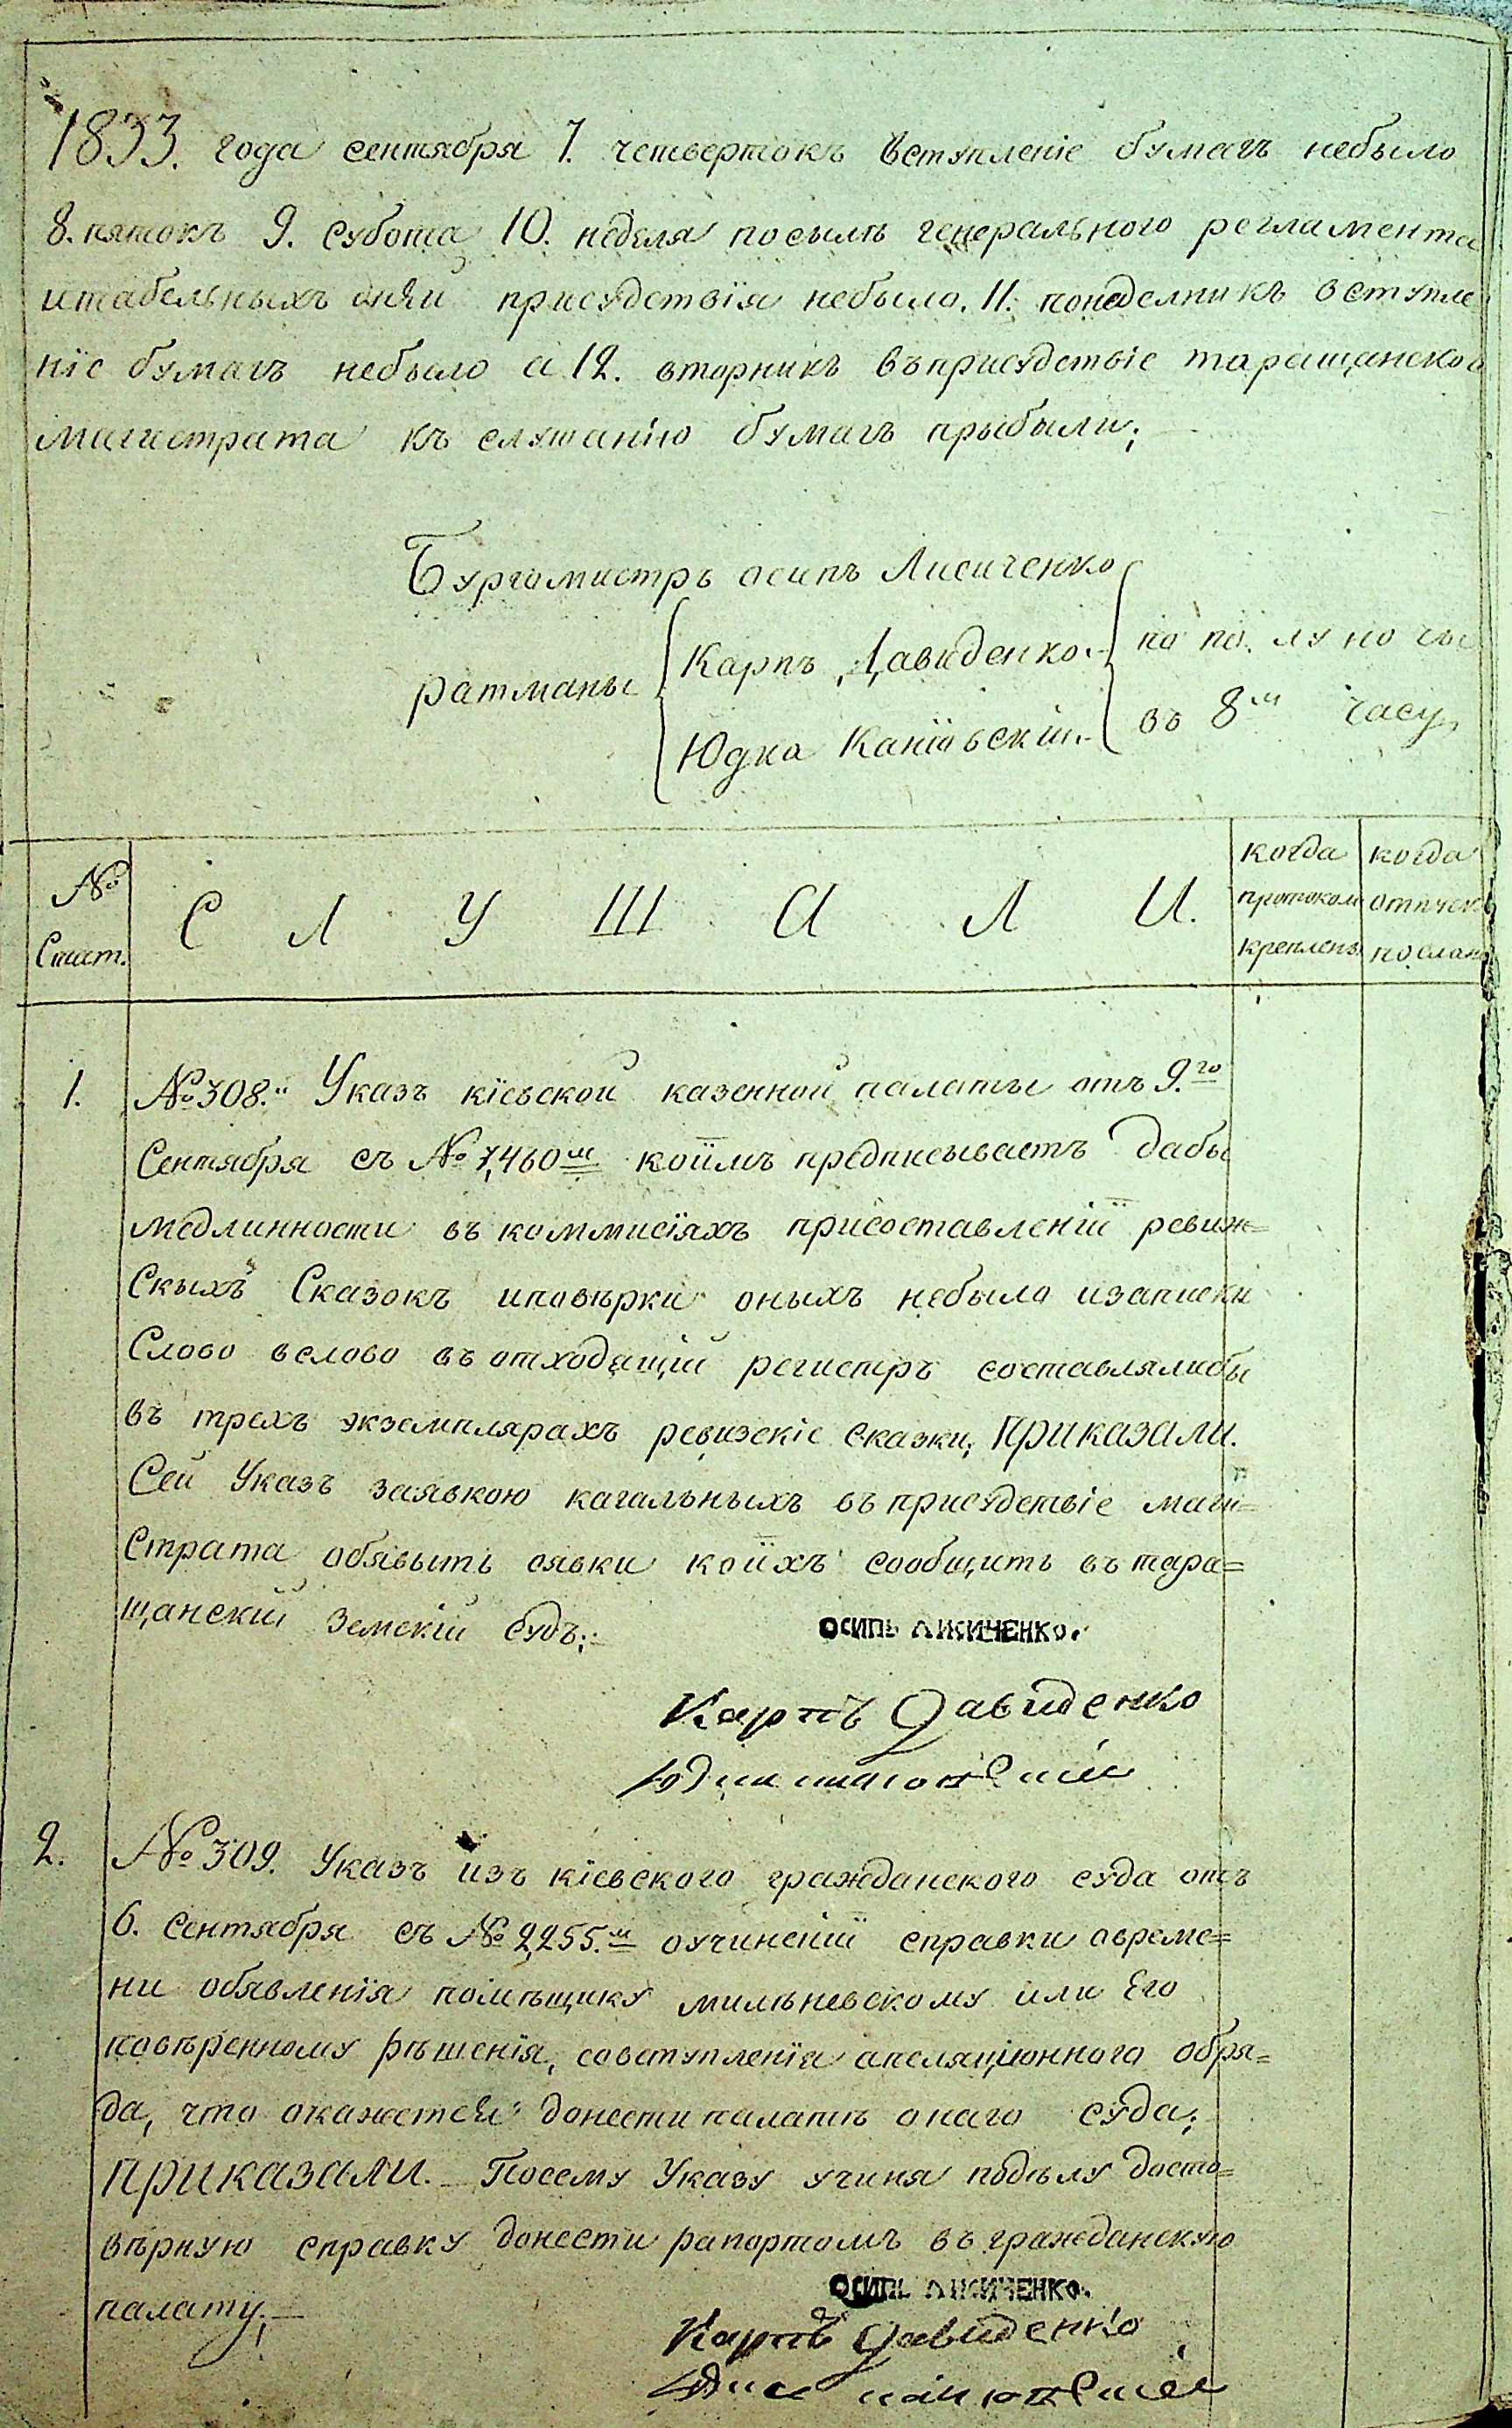 1833. года сентября 7. четвертокъ вступленіе бумагъ небыло
8. пятокъ 9. субота 10. неделя посылѣ генерального регламента
итабельныхъ дней присудствїя небыло. 11. понеделникъ вступле
нїе бумагъ небыло а 12. вторникъ въприсудствіе таращанского
магистрата къ слушанїю бумагъ прыбыли;
Бургомистръ осипъ Лисиченко
ратманы
Карпъ Давиденко.
Юдка Канїовскїи.
по по. лу но чы
въ 8м часу,
№
Стат.
С Л У Ш А Л И.
когда
протоколъ
крепленъ
когда
отпускъ
посланъ
1. №308.й Указъ кїевской казенной палаты отъ 9.го
Сентября съ №7,460м коїимъ предписываетъ дабы
медлинности въ коммисїяхъ присоставленїи ревиж=
Скыхъ Сказокъ иповѣрки оныхъ небыло изаписки
Слово вслово въ отходящїй регистръ составлялибы
въ трехъ экземплярахъ ревизскіе сказки; ПРИКАЗАЛИ.
Сей Указъ заявкою кагальныхъ въ присудствіе маги=
Страта обявыть оявки коїихъ сообщить въ тара=
щанскїй земскїй судъ;
ОСИПЪ ЛИСИЧЕНКО.
Карпъ Давиденко
2. №309. Указъ изъ кїевского гражданского суда отъ
6. Сентября съ №2,255.м оучиненїи справки овреме=
ни обявленїя помѣщику милѣневскому или Его
повѣренному рѣшенїя, совступленїя апеляцїонного обря=
да, что окажется донести палатѣ онаго суда;
ПРИКАЗАЛИ. Посему Указу учиня подѣлу досто=
вѣрную справку донести рапортомъ въ гражданскую
палату;
ОСИПЪ ЛИСИЧЕНКО.
Карпъ Давиденко